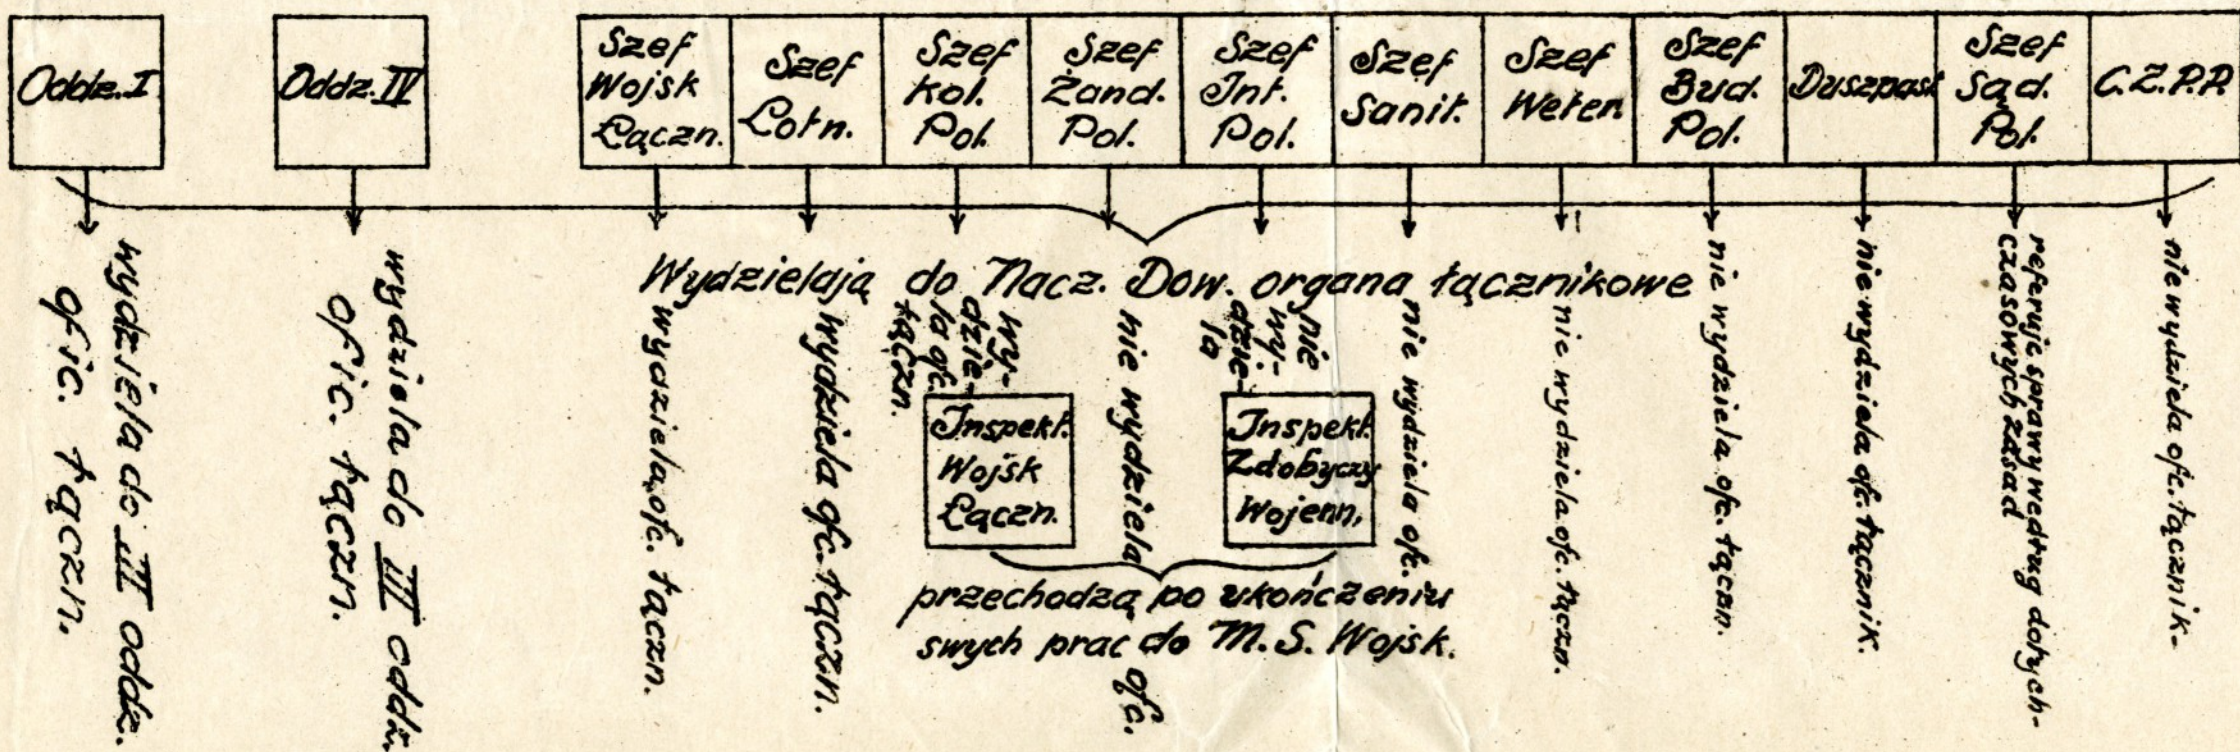 Oddz. I
Oddz. IV
Szef
Wojsk
Łączn.
Szef
Lotn.
Szef
Kol.
Pol.
Szef
Żand.
Pol.
Szef
Int.
Pol.
Szef
Sanit.
Szef
Weter.
Szef
Bud.
Pol.
Duszpast
Szef
Sąd.
Pol.
C.Z.P.P.
Wydzielają do Nacz. Dow. organa łącznikowe
wydziela do III oddz.
ofic. łączn.
wydziela do III oddz.
ofic. łączn.
wydziela ofc. łączn.
wydziela ofc. łączn.
wy-
dzie-
la ofc.
łączn.
nie wydziela ofc.
nie
wy-
dzie-
la
nie wydziela ofc.
nie wydziela ofc. łączn.
nie wydziela ofc. łączn.
nie wydziela ofc. łącznik.
referuje sprawy według dotych-
czasowych zasad
nie wydziela ofc. łącznik-
Inspekt.
Wojsk
Łączn.
Inspekt.
Zdobyczy
Wojenn,
przechodzą po ukończeniu
swych prac do M. S. Wojsk.